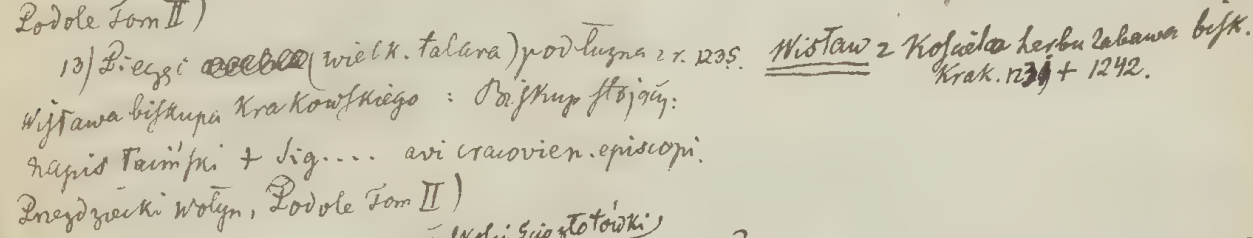 Podole Tom II)
13) Pieczęć (wielk. talara) podłużna z r. 1235. Wisław z Kościelca herbu Zabawa bisk.
Krak. 1231 + 1242.
Wisława biskupa Krakowskiego : Biskup stojący:
napis łaciński + Sig.... avi cracovien. episcopi.
Przezdziecki Wołyn, Podole Tom II)